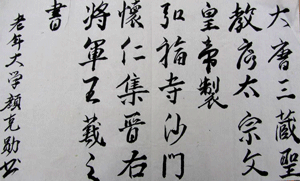 大唐三藏聖
教序太宗文
皇帝製
弘福寺沙門
懷仁集晉右
將軍王羲之
書
老年大学顏克勋书